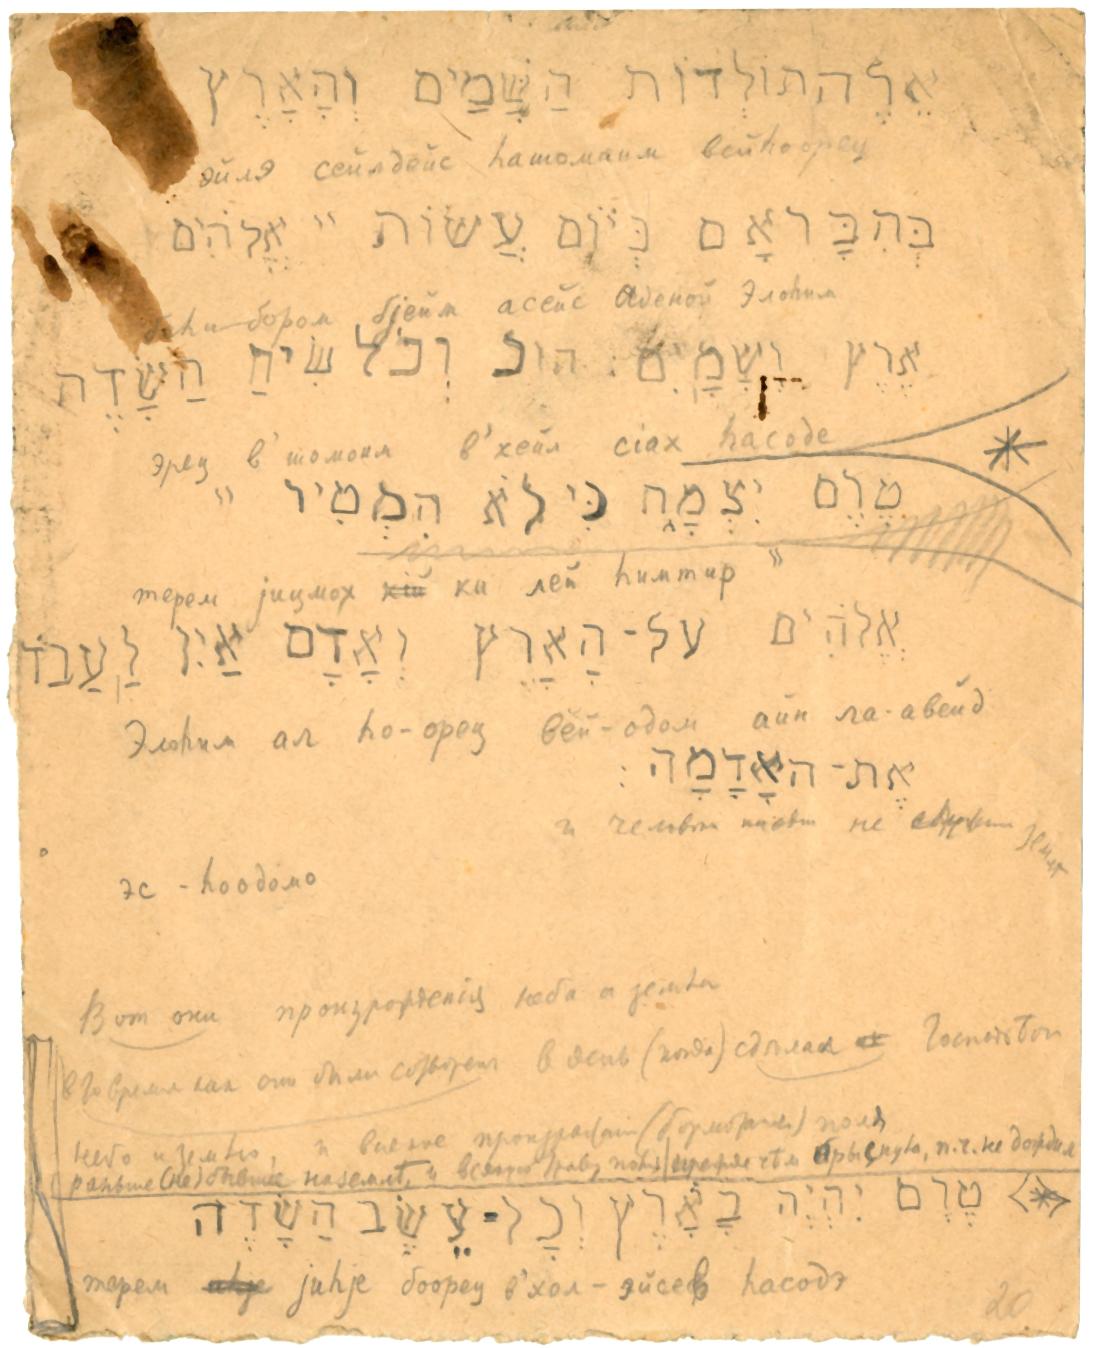 אֵלֶה תוֹלְדוֹת הַשָּׁמַיִם וְהָאָרֶץ
эйлэ сейлдейс hашомаим вейhоорец
בְּהִבָּרְאָם בְּיוֹם עֲשׂוֹת יי אֱלֹהִים
бehи-бором бjейм асейс Аденой Элоhим
אֶרֶץ וְשָׁמָיִם: וְכֹל שִׂיחַ הַשָׂדֶה
эрец в'шомоим в'хейл сiах hасоде
טֶרֶם יִצְמָח כִּי לֹא הִמְטִיר "
терем jицмох хiй ки лей hимтир "
אֱלֹהִים עַל-הָאָרֶץ וְאָדָם אַיִן לַעֲבֹד
Элоhим ал hо-орец вей-одом айн ла-авейд
אֶת-הָאֲדָמָה:
и человек не земля
эс-hоодомо
Вот они произрожденiя неба и земли
в то время как они были сотворены в день (когда) сделал Господь Бог
небо и землю, и всякое поля
раньше (не) на земле, и всякую траву поля прежде чем, п.ч. не дождил
טֶרֶם יִהְיֶה בָאָרֶץ וְכָל-עֵשֶׂב הַשָׂדֶה
терем jиhje боорец в'хол-эйсев hасодэ
20